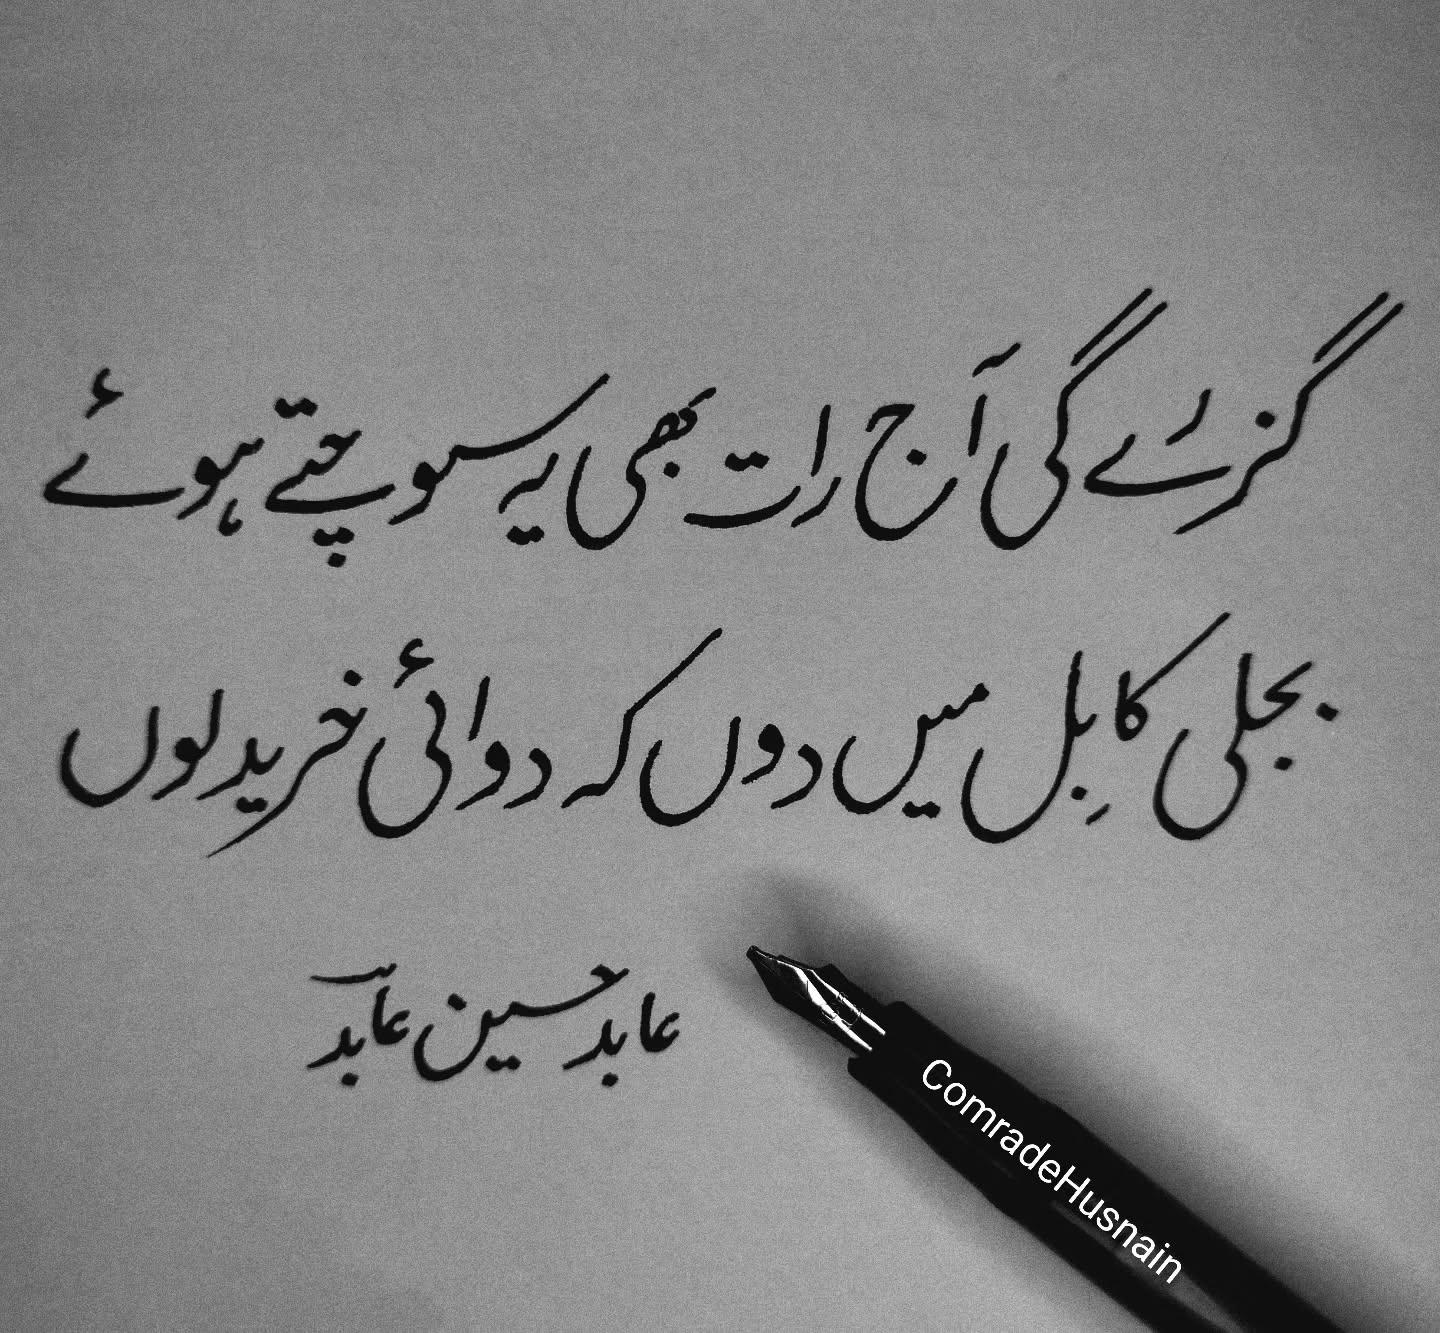 گزرے گی آج رات بھی یہ سوچتے ہوئے
بجلی کا بِل میں دوں کہ دوائی خرید لوں
عابد حسین عابد
ComradeHusnain